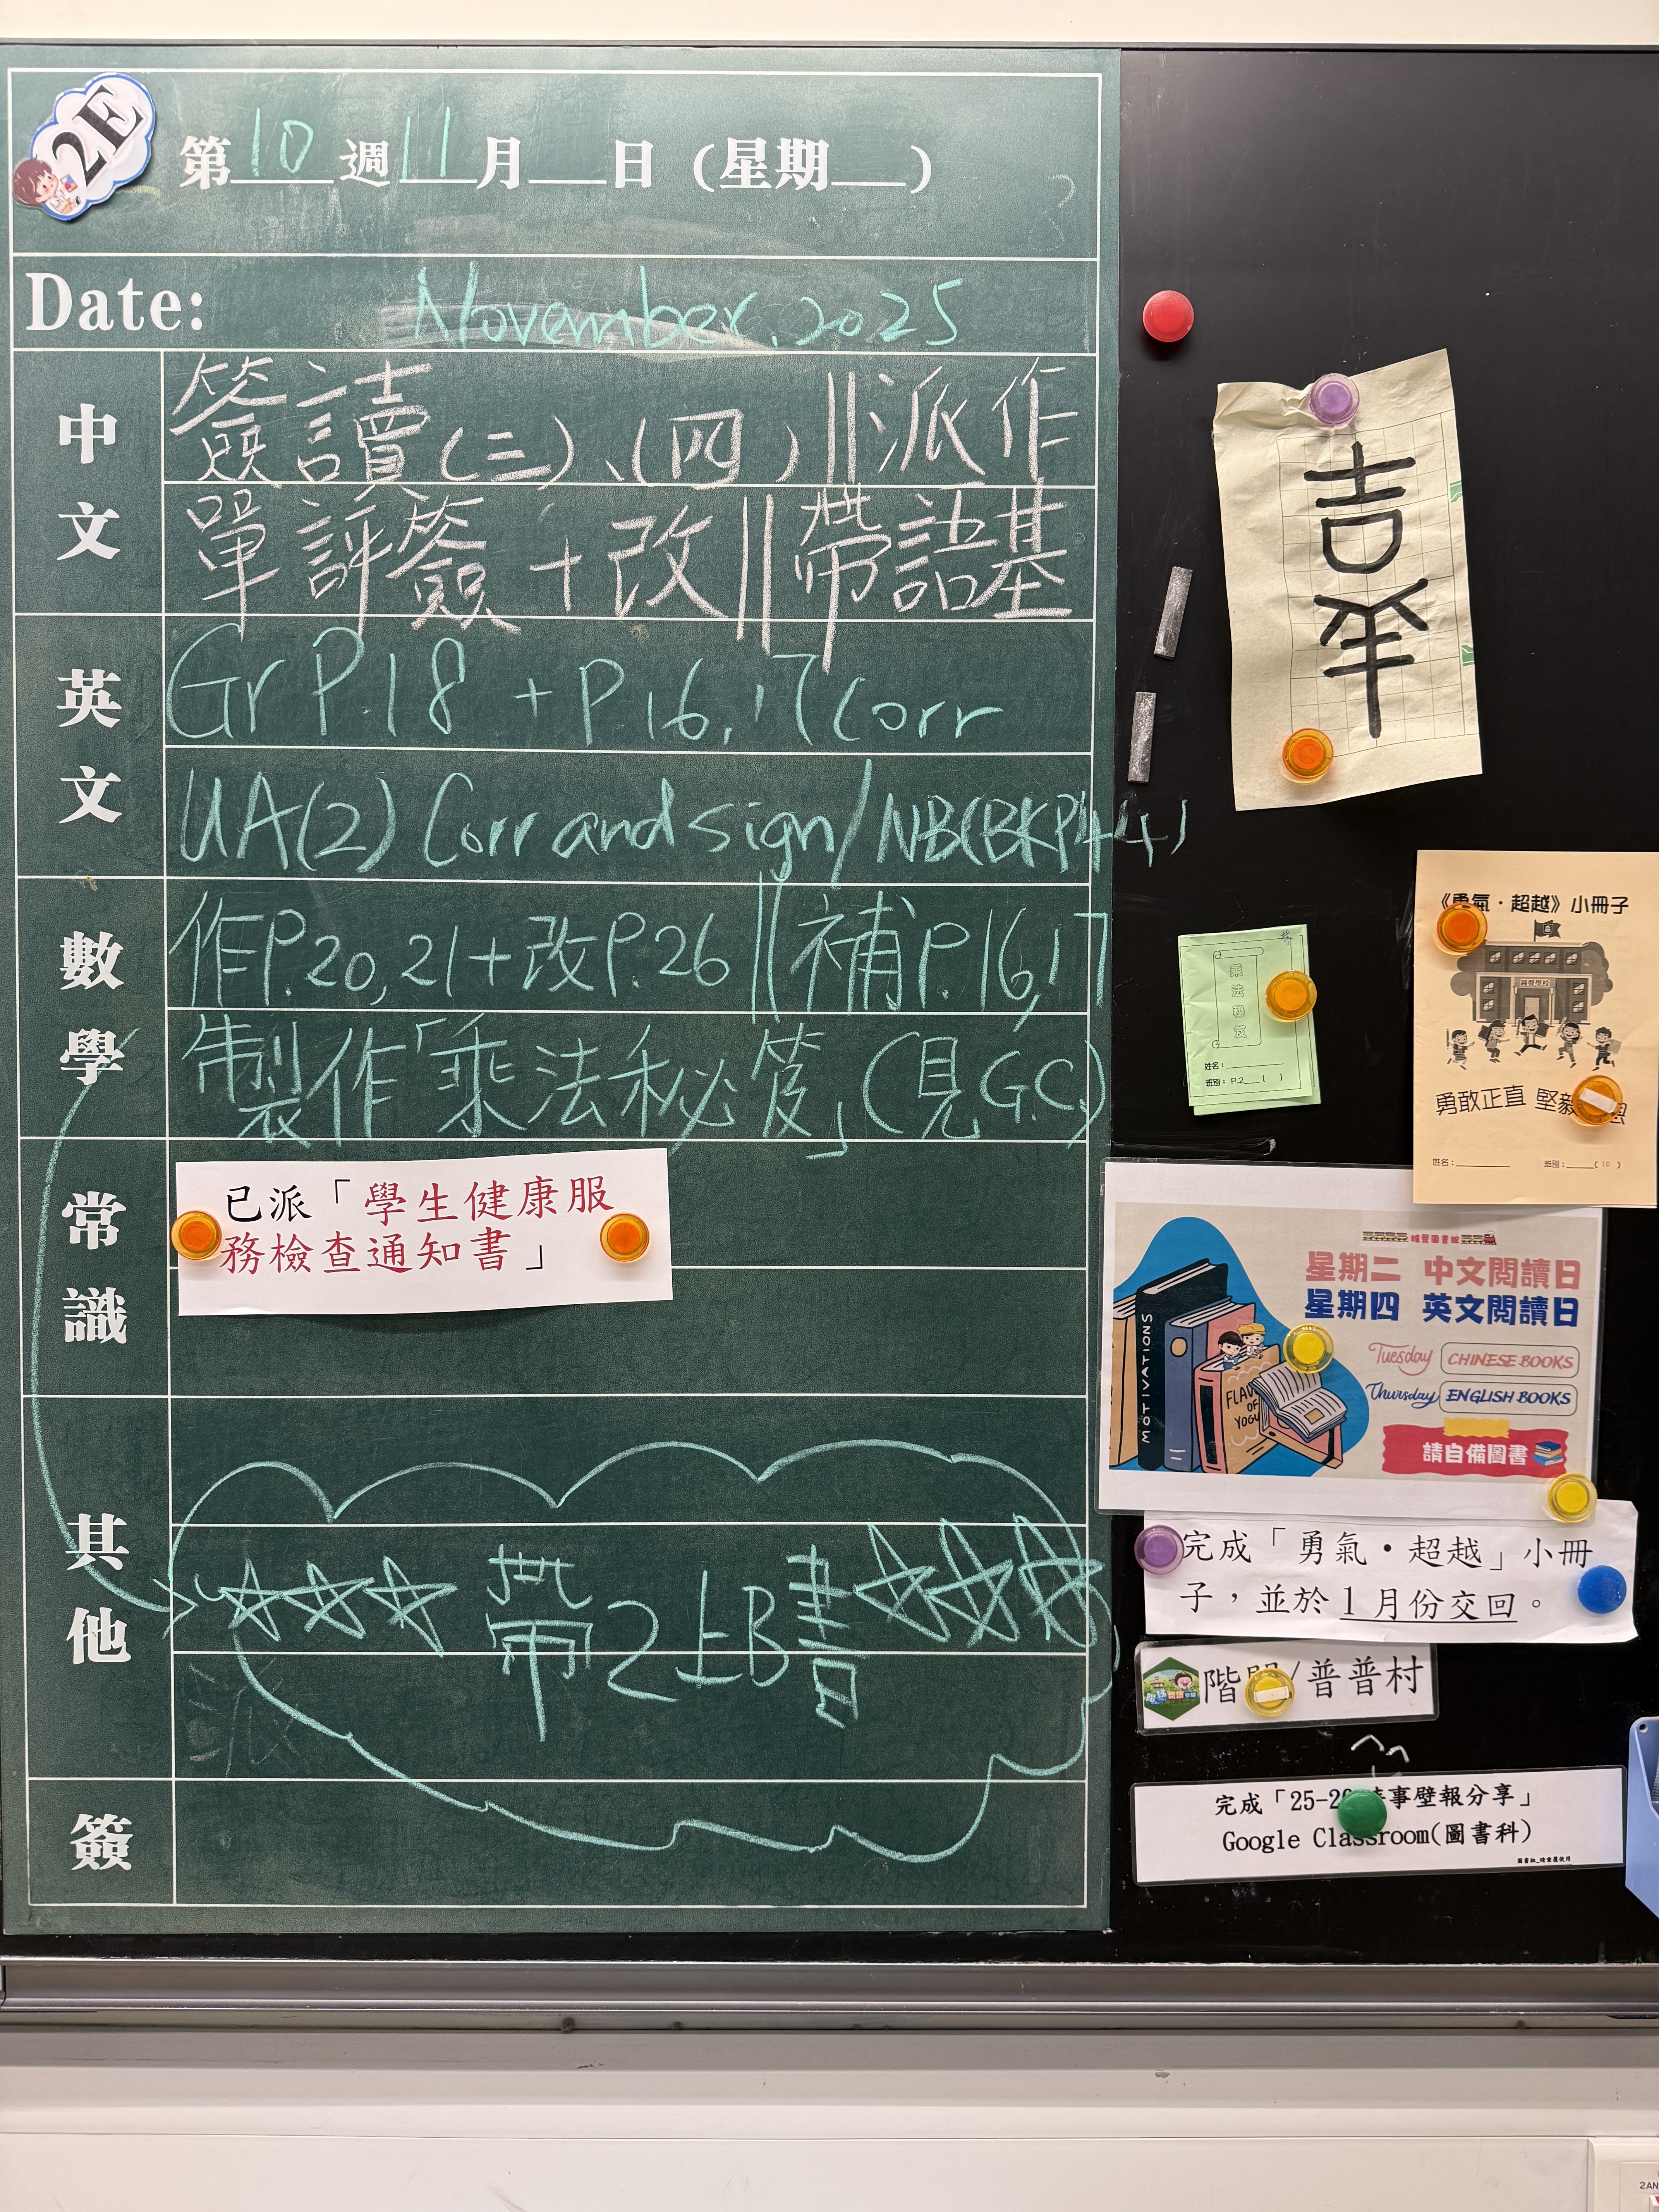 2E
第10週11月 日(星期 )
Date: November, 2025
中文
簽讀(三)、(四)||派作
單評簽+改||帶語基
英文
Gr P.18 + P.16, 17 Corr
UA(2) Corr and sign/NB(BKP44)
數學
作P.20, 21+改P.26||補P.16,17
製作「乘法秘笈」(見G.C.)
常識
已派「學生健康服
務檢查通知書」
其他
☆☆☆帶2上B書☆☆☆
派
簽
吉羊
乘法秘笈
姓名:
班別:P.2 ( )
《勇氣·超越》小冊子
勇敢正直 堅毅
姓名: 班別: (10)
星期二 中文閱讀日
星期四 英文閱讀日
Tuesday CHINESE BOOKS
Thursday ENGLISH BOOKS
請自備圖書
MOTIVATIONS
OF
完成「勇氣•超越」小冊
子,並於1月份交回。
階 /普普村
完成「25- 事壁報分享」
Google Classroom(圖書科)
2AN